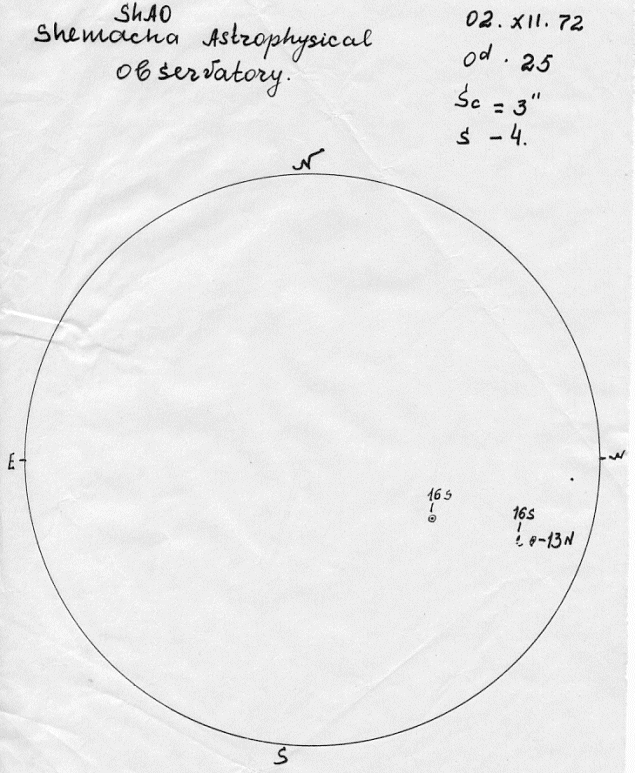 ShAO
Shemacha Astrophysical
Observatory.
02. XII. 72
0d . 25
Sc = 3"
S - 4.
N
E
W
16S
16S
-13N
S